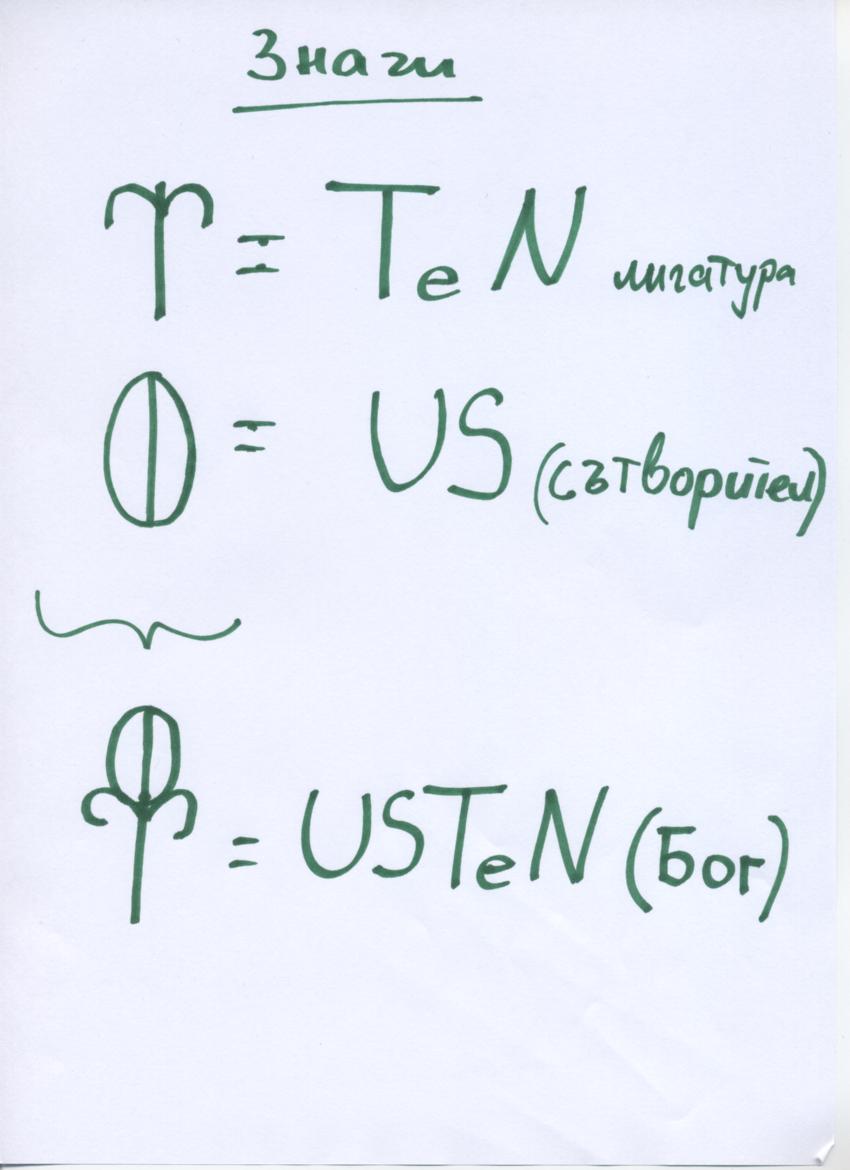 Знаци
= TeN лигатура
= US (сътворител)
= USTeN (Бог)